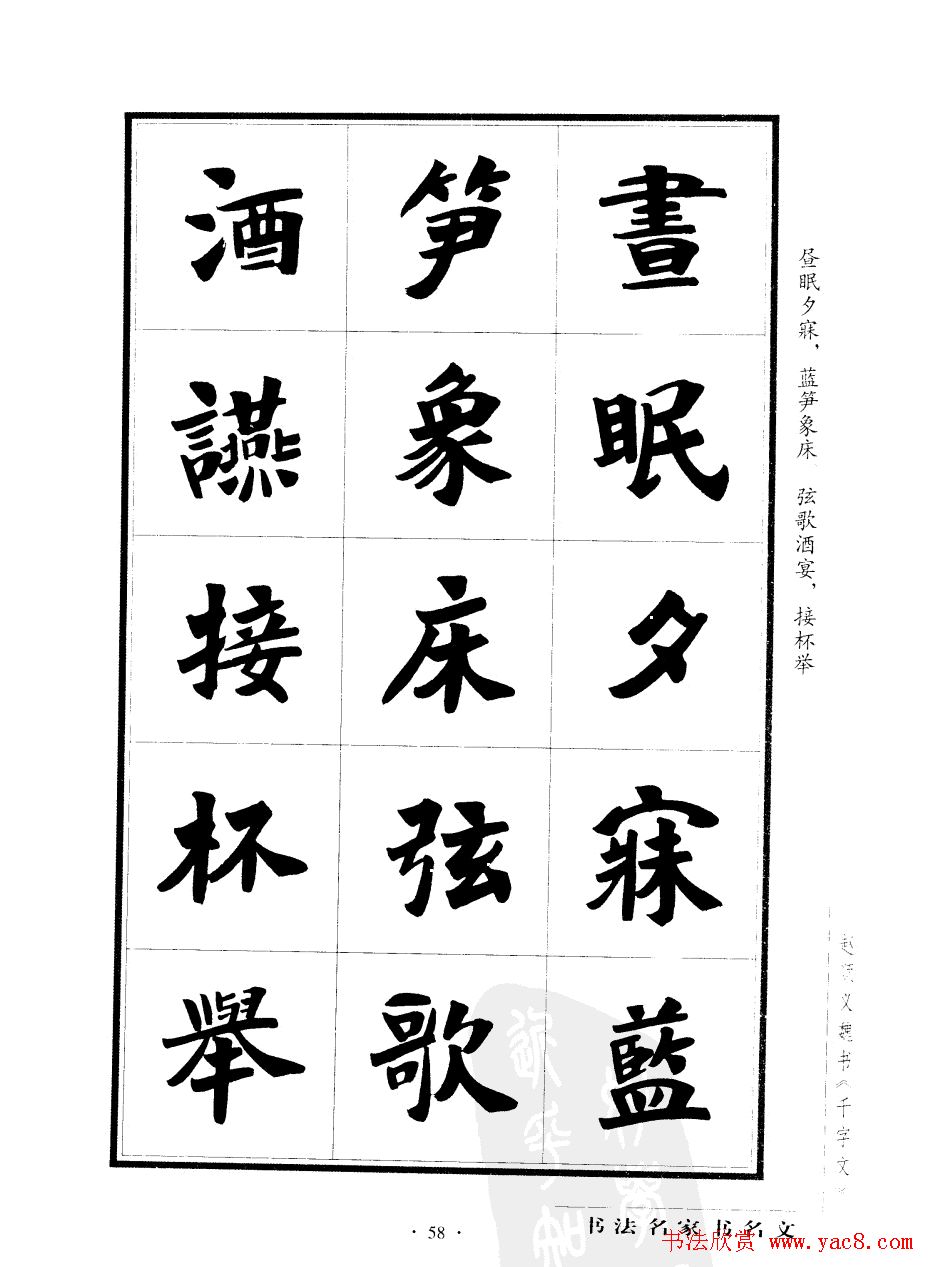 晝眠夕寐藍
笋象床弦歌
酒讌接杯舉
昼眠夕寐，蓝笋象床 弦歌酒宴，接杯举
魏书《千字文》
· 58 ·
书法名家书名文
书法欣赏 www.yac8.com